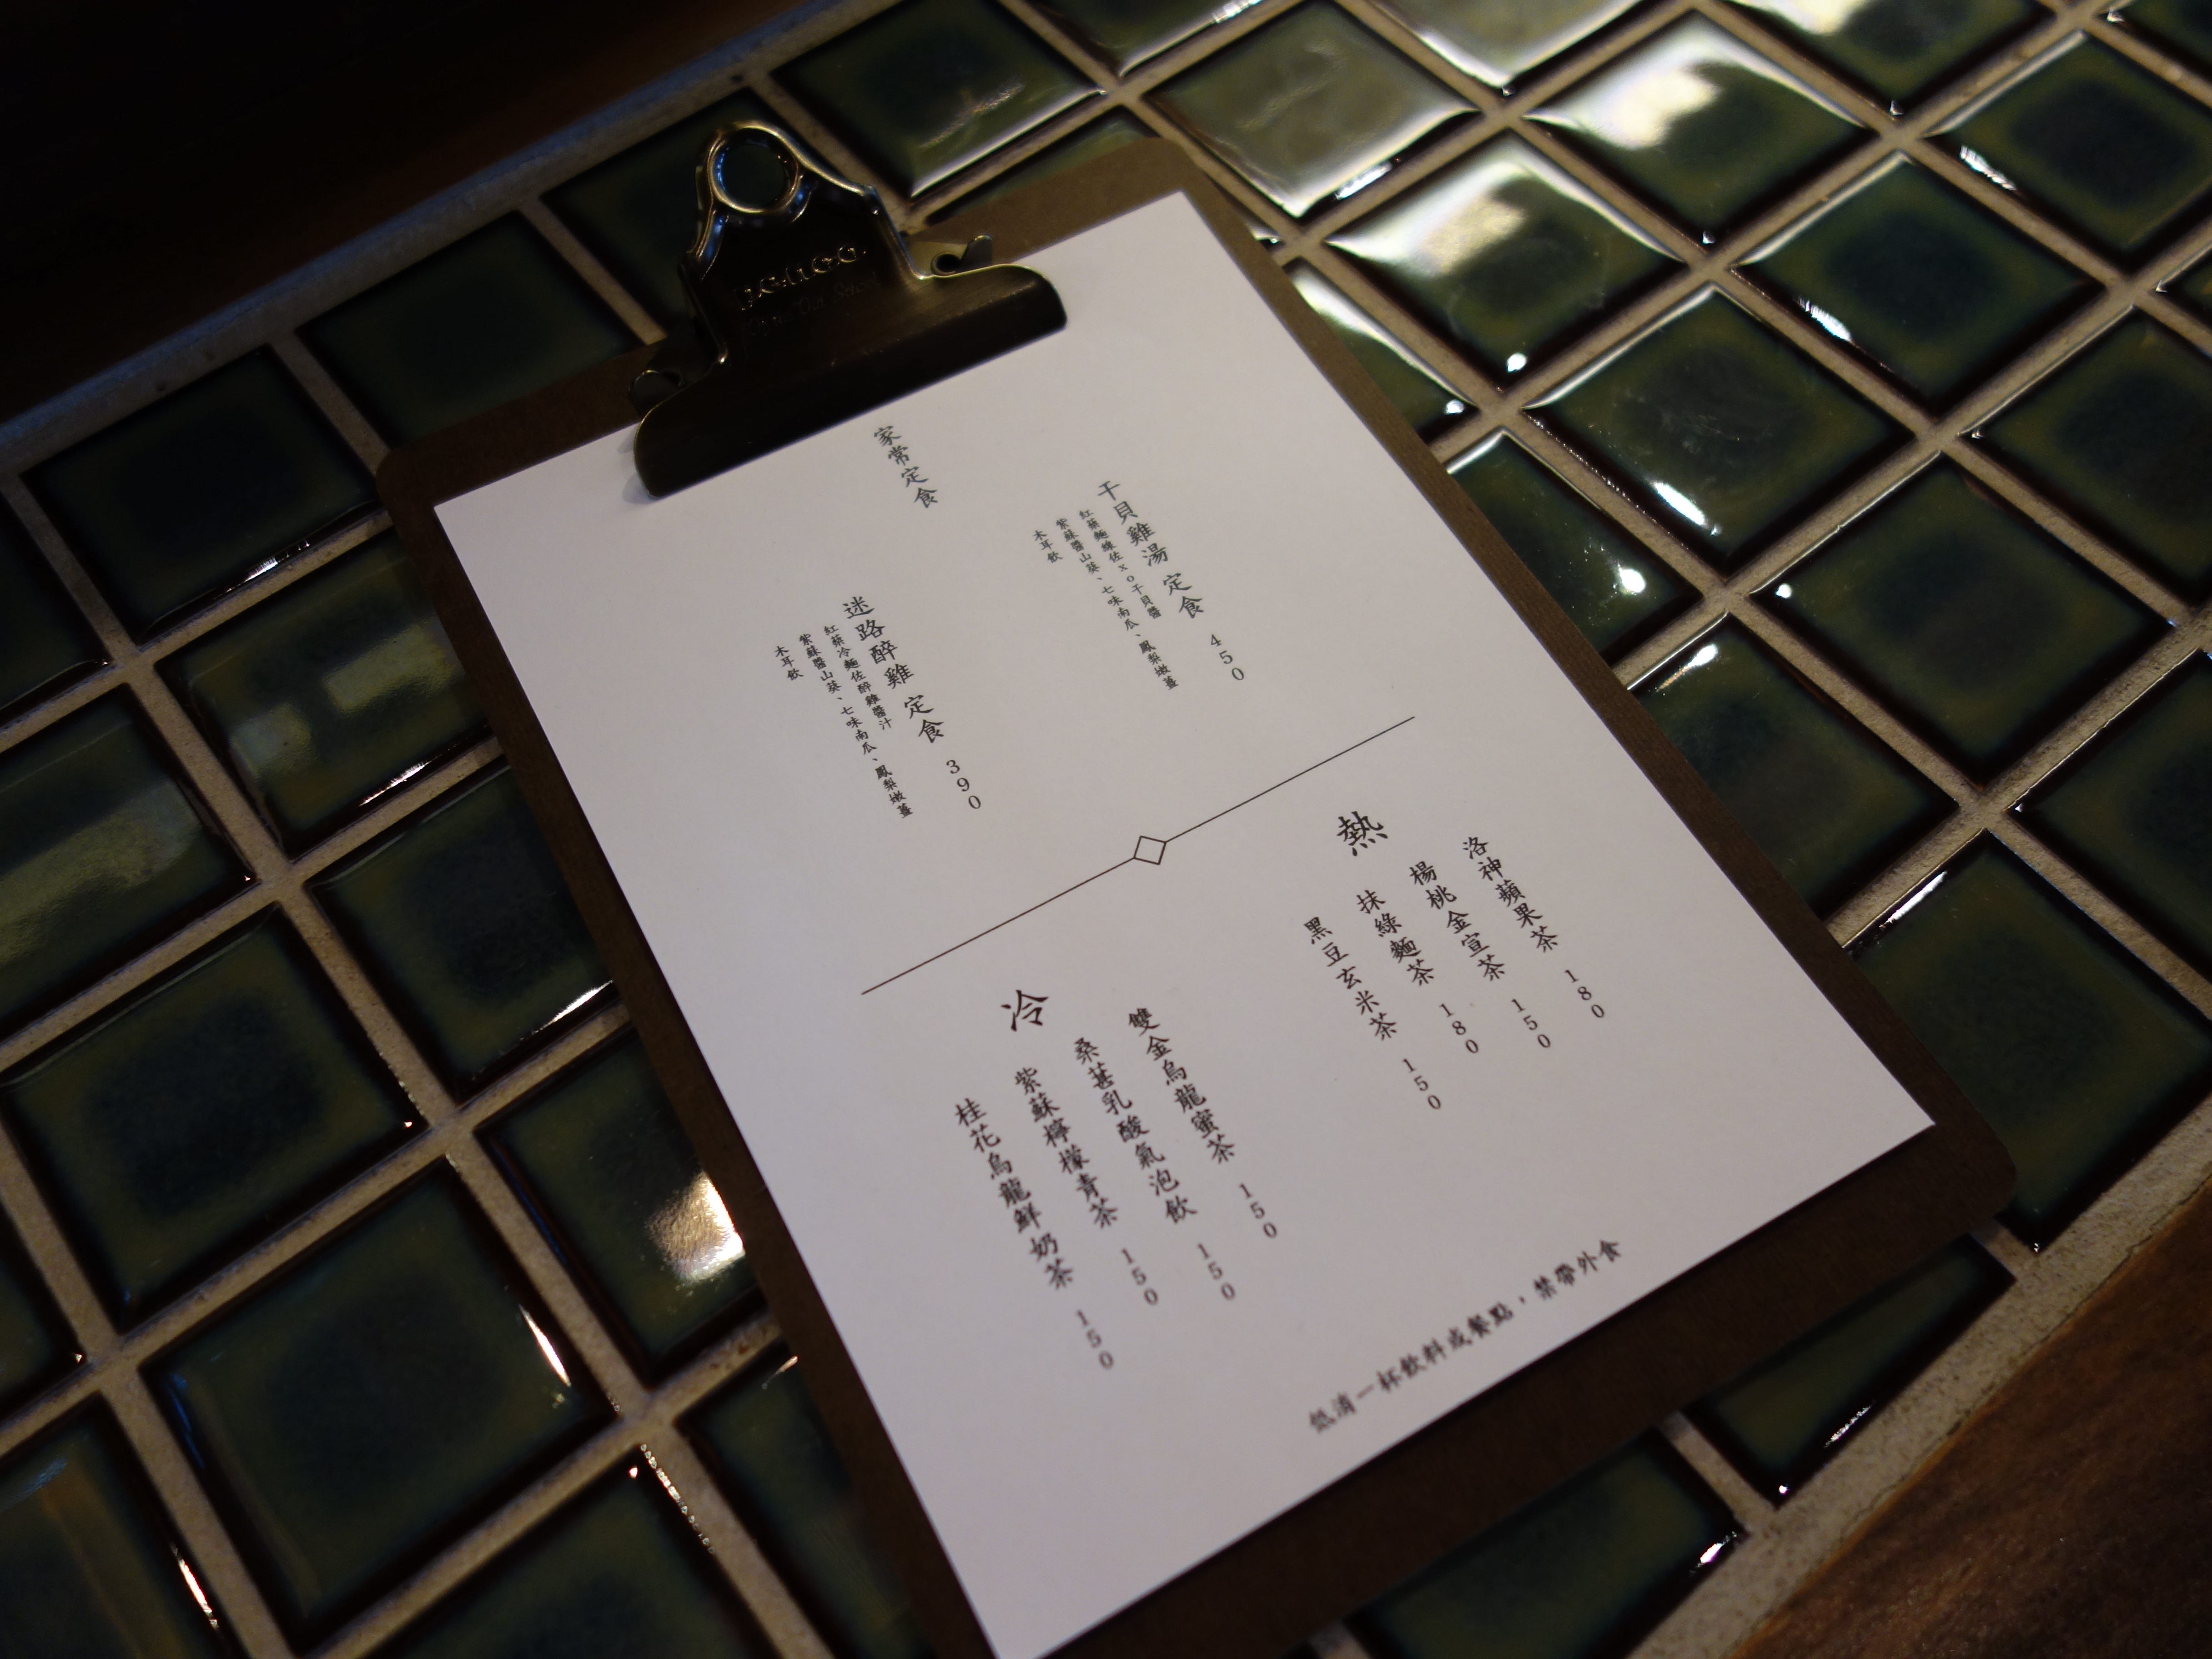 家常定食
干貝雞湯 定食 450
紅藜麵線佐xo干貝醬
紫蘇醬山葵、七味南瓜、鳳梨嫩薑
木耳飲
迷路醉雞 定食 390
紅藜冷麵佐醉雞醬汁
紫蘇醬山葵、七味南瓜、鳳梨嫩薑
木耳飲
熱
洛神蘋果茶 180
楊桃金宣茶 150
抹綠麵茶 180
黑豆玄米茶 150
冷
雙金烏龍蜜茶 150
桑葚乳酸氣泡飲 150
紫蘇檸檬青茶 150
桂花烏龍鮮奶茶 150
低消一杯飲料或餐點，禁帶外食